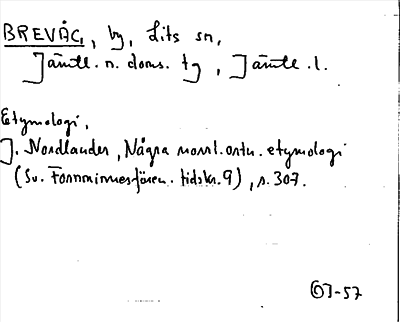 BREVÅG, by, Lits sn,
Jämtl. n. doms. tg, Jämtl. l.
Etymologi,
J. Nordlander, Några norrl. ortn. etymologi
(Sv. Fornminnesfören. tidskr. 9), s. 307.
-57